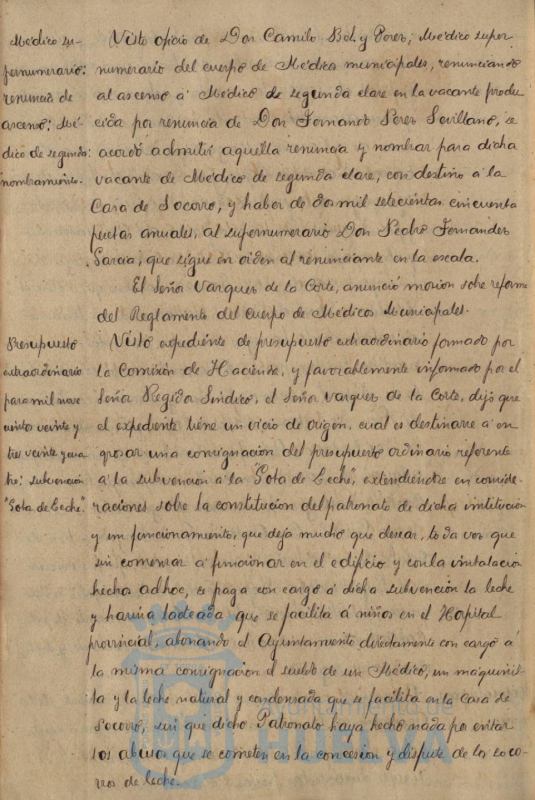 Médico su-
pernumerario:
renuncia de
ascenso: Mé-
dico de segunda:
nombramiento.
Visto oficio de Don Camilo Bel y Perez, Médico super
numerario del cuerpo de Médicos municipales, renunciando
al ascenso á Médico de segunda clase en la vacante produ
cida por renuncia de Don Fernando Perez Sevillano, se
acordó admitir aquella renuncia y nombrar para dicha
vacante de Médico de segunda clase, con destino á la
Casa de Socorro, y haber de dos mil setecientas cincuenta
pesetas anuales, al supernumerario Don Pedro Fernandez
Garcia, que sigue en orden al renunciante en la escala.
El Señor Vazquez de la Corte, anunció moción sobre reforma
del Reglamento del cuerpo de Médicos Municipales.
Presupuesto
extraordinario
para mil nove
cientos veinte y
tres veinte y cua
tro: subvención
"Gota de Leche".
Visto expediente de presupuesto extraordinario formado por
la Comisión de Hacienda, y favorablemente informado por el
Señor Regidor Síndico, el Señor Vazquez de la Corte, dijo que
el expediente tiene un vicio de origen, cual es destinarse á en
grosar una consignación del presupuesto ordinario referente
á la subvención á la "Gota de Leche", extendiendose en conside
raciones sobre la constitucion del patronato de dicha institución
y su funcionamiento, que deja mucho que desear, toda vez que
sin comenzar a funcionar en el edificio y con la instalación
hechos adhoc, se paga con cargo á dicha subvención la leche
y harina lacteada que se facilita á niños en el Hospital
provincial, abonando el Ayuntamiento directamente con cargo á
la misma consignación el sueldo de un Médico, un maquinis
ta y la leche natural y condensada que se facilita en la Casa de
Socorro, sin que dicho Patronato haya hecho nada por evitar
los abusos que se cometen en la concesión y disfrute de los soco
rros de leche.